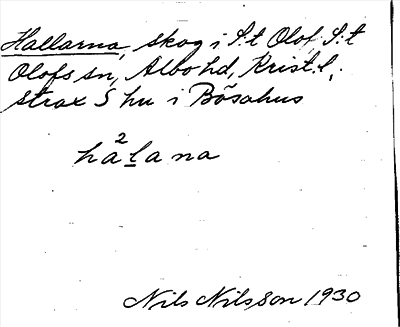 Hallarna, skog i S:t Olof, S:t
Olofs sn, Albo hd, Krist. l,
strax S hu i Bösahus
ha²lana
Nils Nilsson 1930